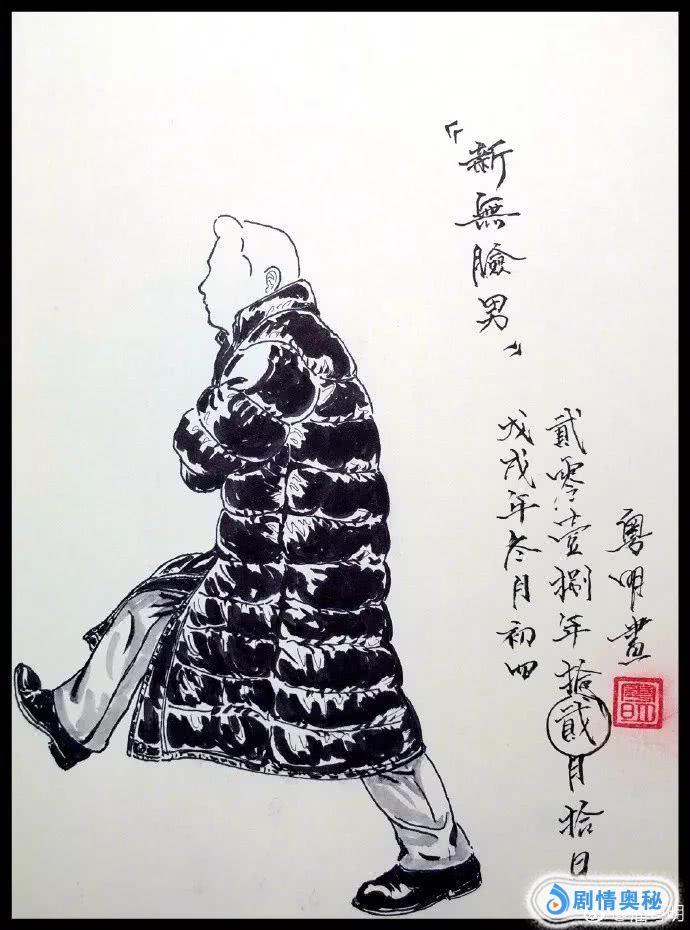 『新無臉男』
戊戌年冬月初四
貳零壹捌年拾貳月拾日
粵明畫
剧情奥秘